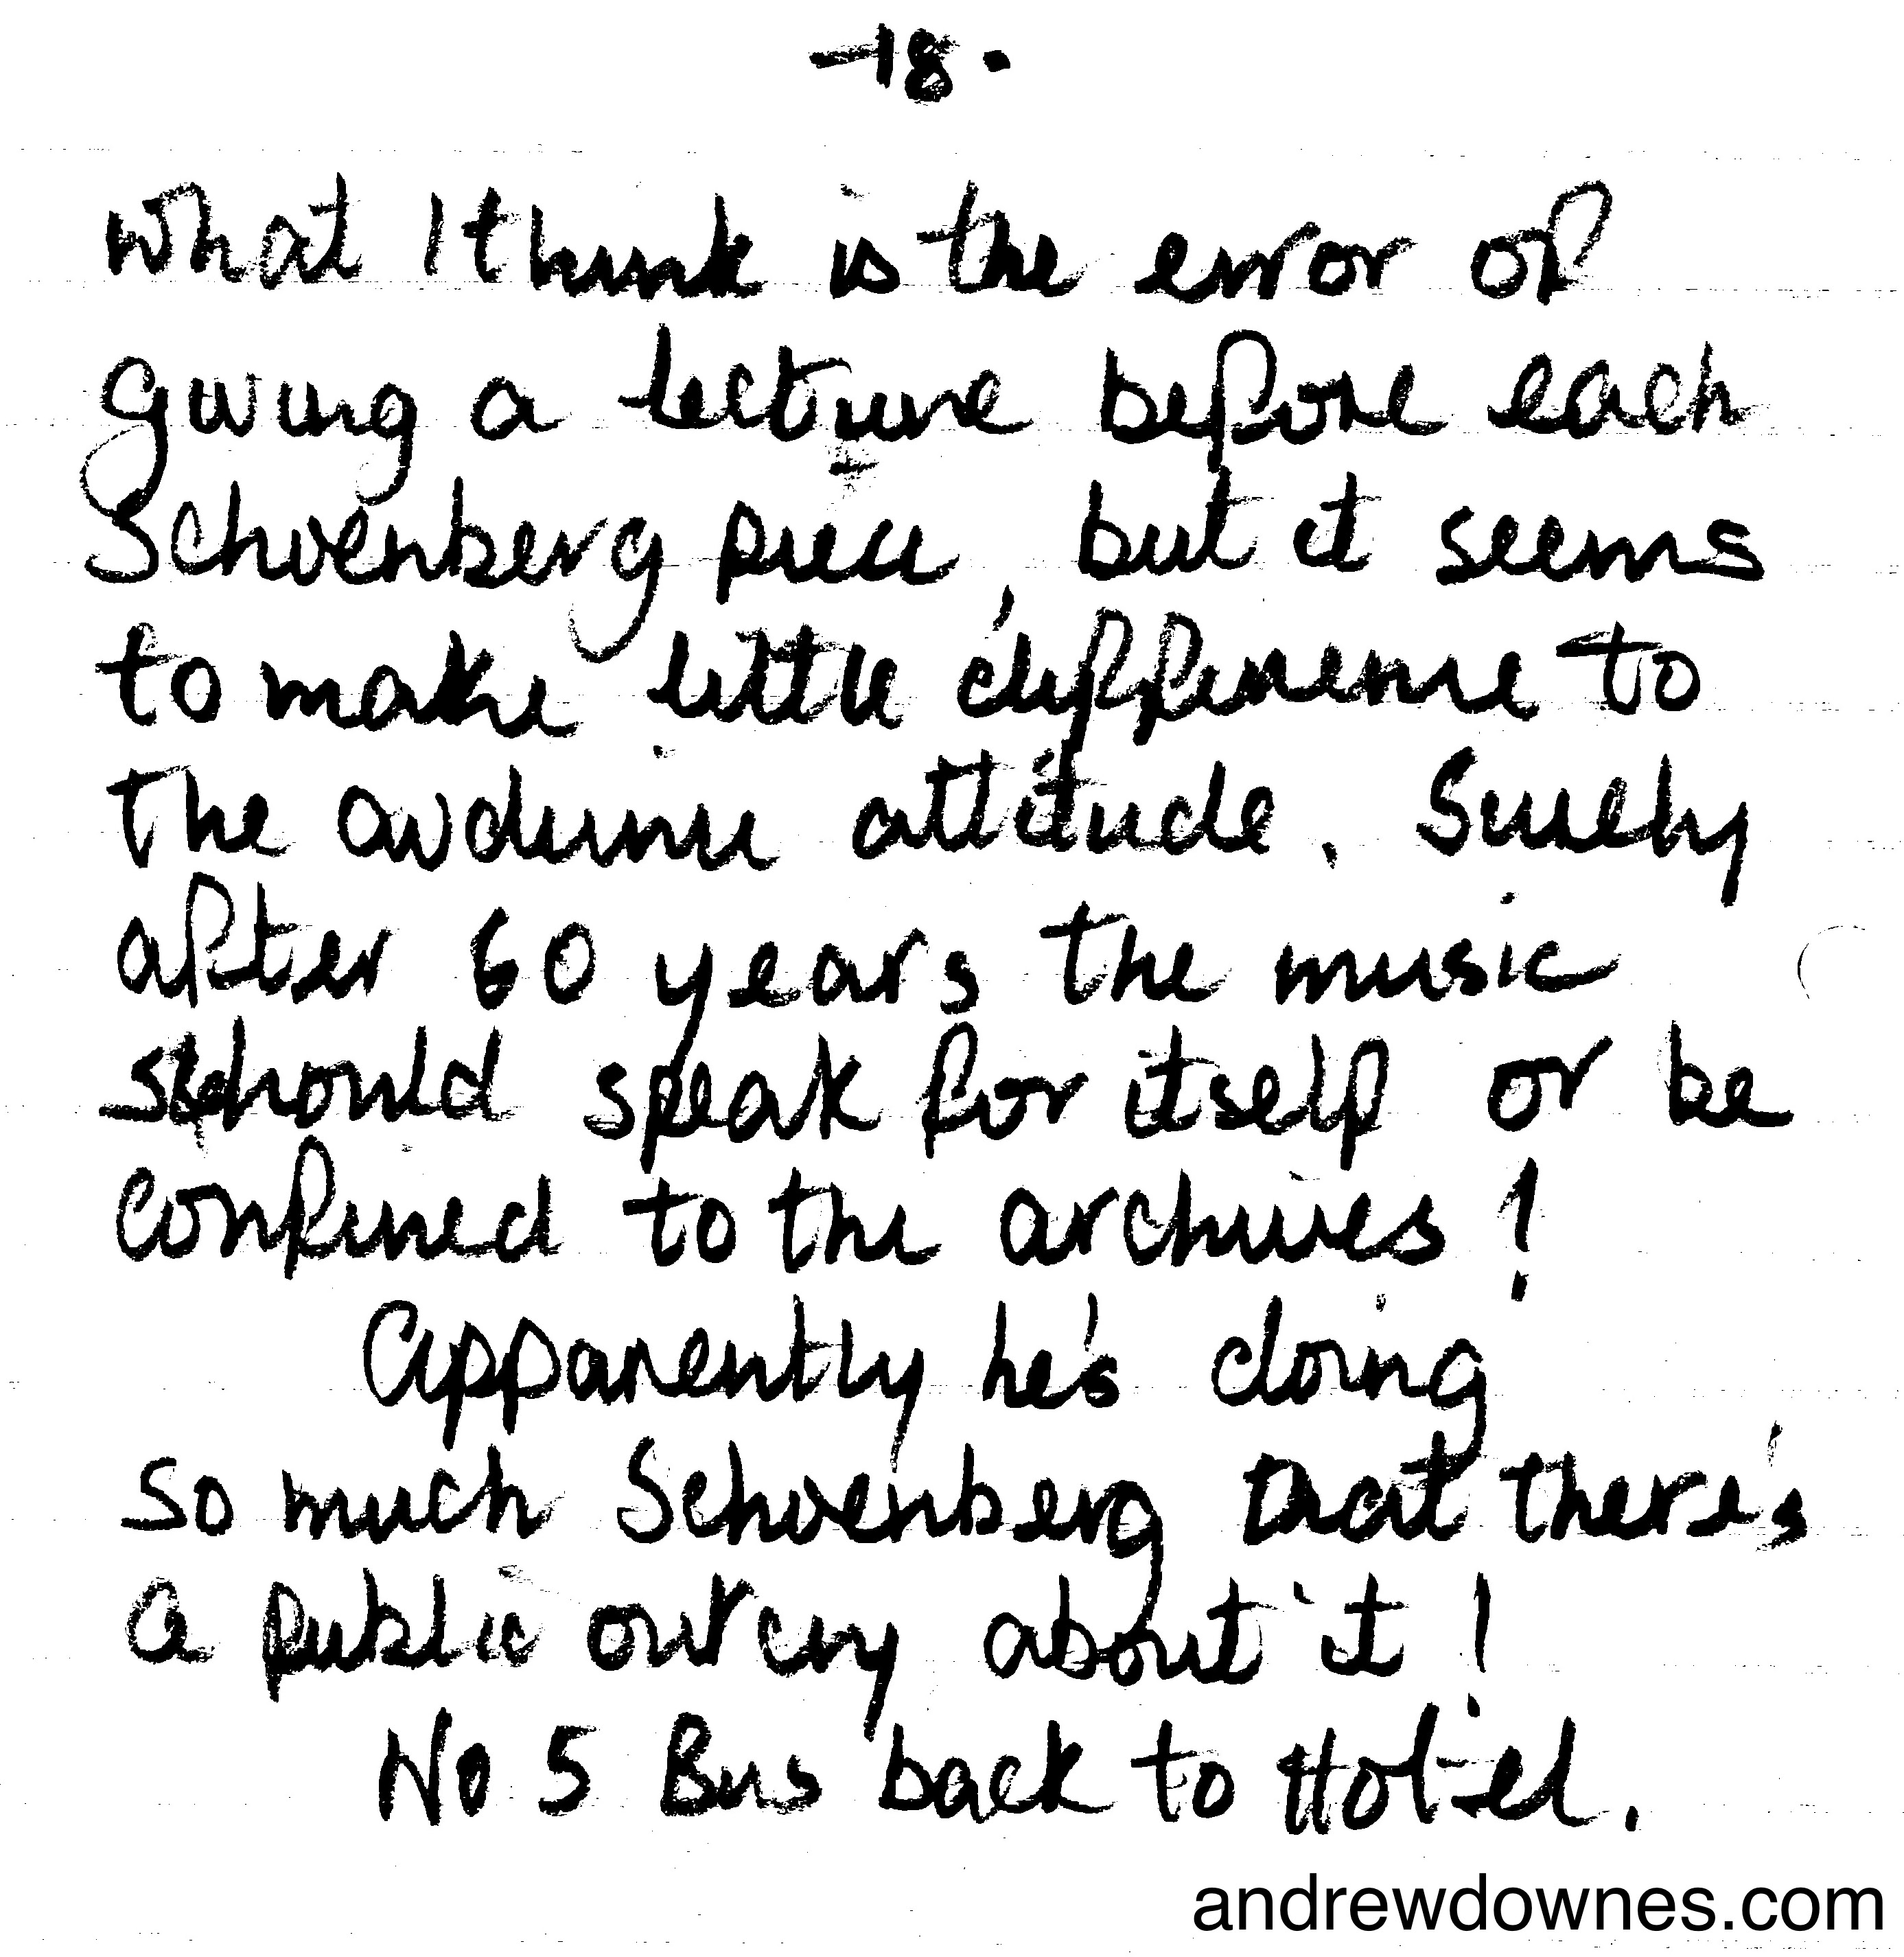 -18.
what I think is the error of
giving a lecture before each
Schoenberg piece, but it seems
to make little difference to
the audience attitude. Surely
after 60 years the music
should speak for itself or be
confined to the archives!
Apparently he's doing
so much Schoenberg that there's
a public outcry about it!
No 5 Bus back to Hotel.
andrewdownes.com